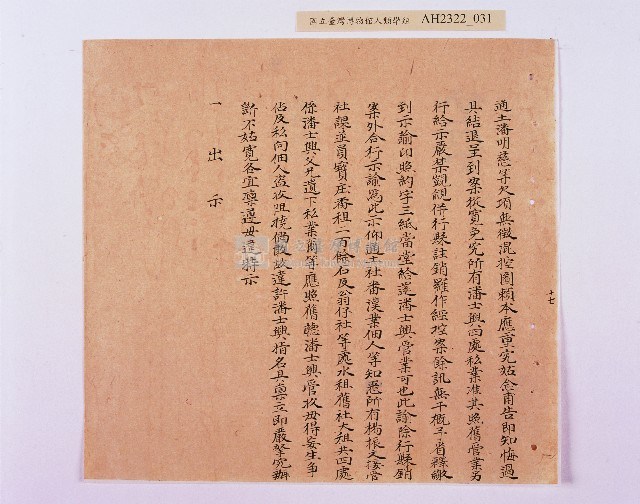 國立臺灣博物館人類學組 AH2322_031
通土潘明慈等欠項無徵混控圖賴本應重究姑念甫告即知悔過
具結退呈到案從寬免究所有潘士興四處私業准其照舊管業另
行給示嚴禁覬覦併行縣註銷羅作經控案餘訊無干概予省釋繳
到示諭印照約字三紙當堂給還潘士興管業可也此諭除行縣銷
案外合行示諭為此示仰通土社番漢業佃人等知悉所有楊振文接管
社課並員寶庄番租二百餘石及翁仔社等處水租舊社大租共四處
係潘士興父兄遺下私業爾等應照舊聽潘士興管收毋得妄生爭
佔及私向佃人盜收阻撓倘敢故違許潘士興指名具稟立即嚴拏究辦
斷不姑寬各宜凜遵毋違特示
一 出示
十七
國立臺灣博物館